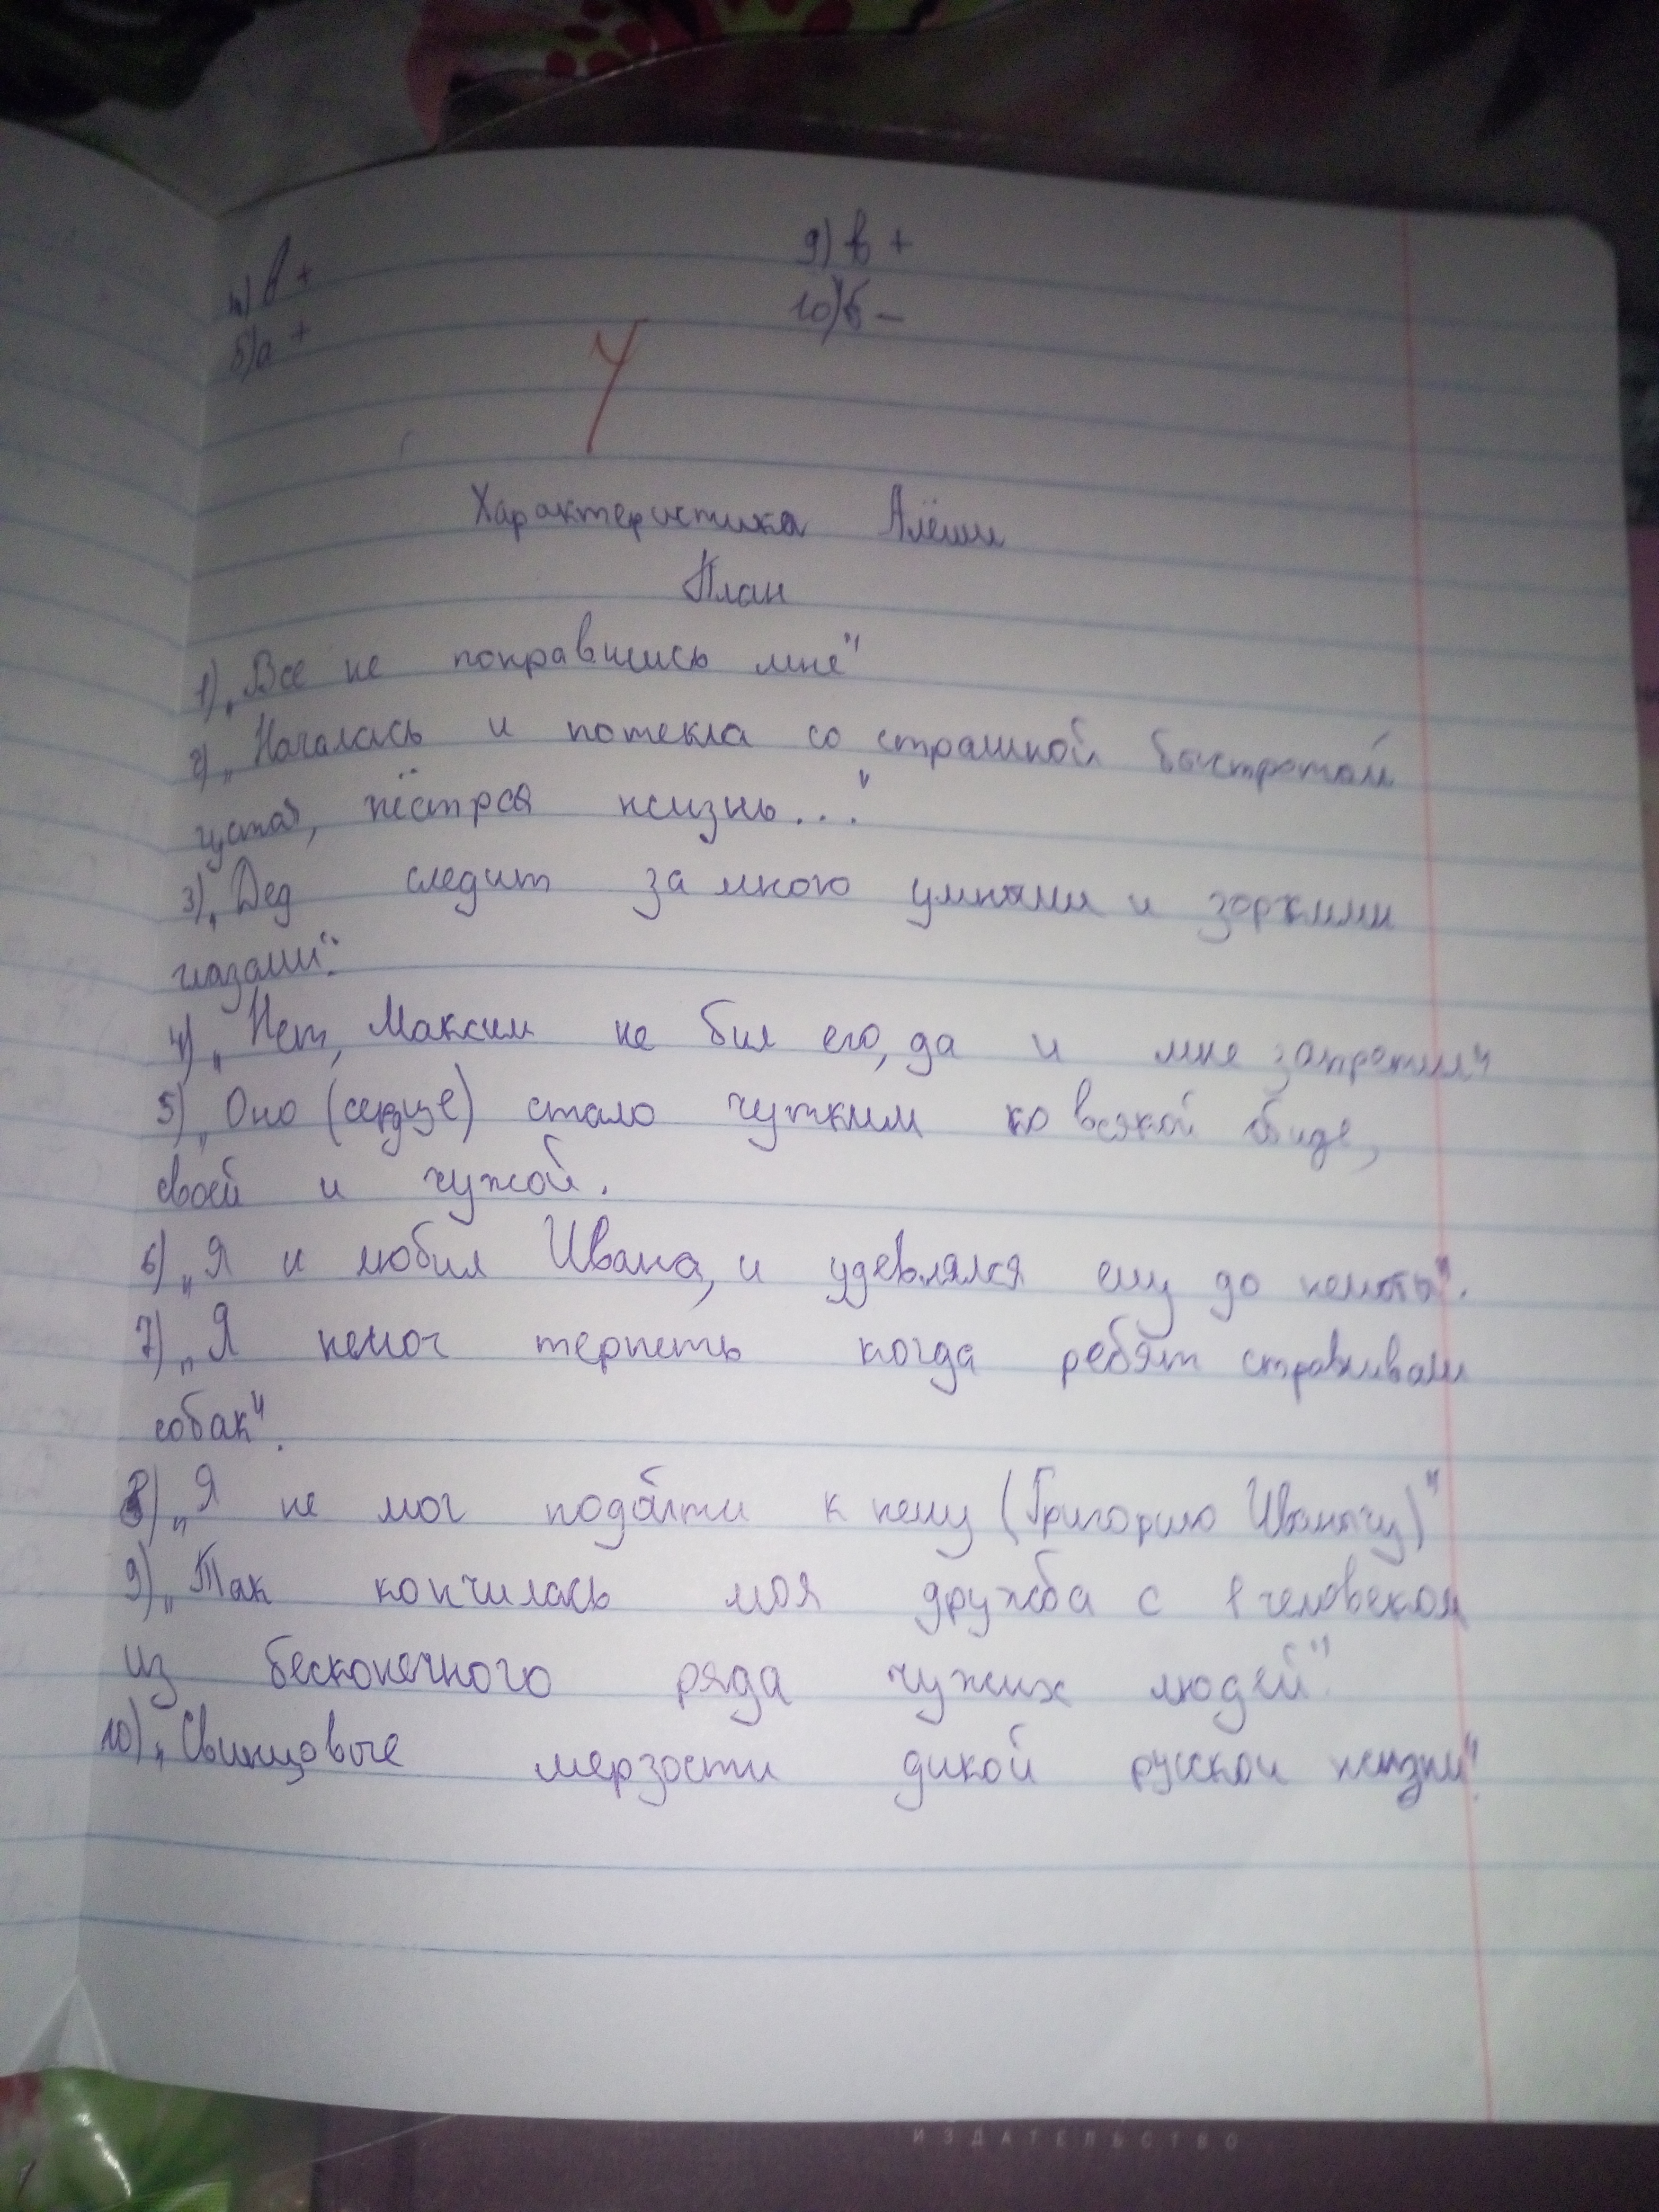 4) в +
5) а +
9) в +
10) б -
4
Характеристика Алёши
План
1) „Все не понравились мне"
2) „Началась и потекла со страшной быстротой
густая, пёстрая жизнь..."
3) „Дед следит за мною умными и зоркими
глазами".
4) „Нет, Максим не бил его, да и мне запретил"
5) „Оно (сердце) стало чутким ко всякой обиде,
своей и чужой.
6) „Я и любил Ивана, и удевлялся ему до немоты".
7) „Я немог терпеть когда ребят стравливали
собак".
8) „Я не мог подойти к нему (Григорию Иванычу)"
9) „Так кончилась моя дружба с 1 человеком
из бесконечного ряда чужих людей".
10) „Свинцовые мерзости дикой русской жизни".
ИЗДАТЕЛЬСТВО